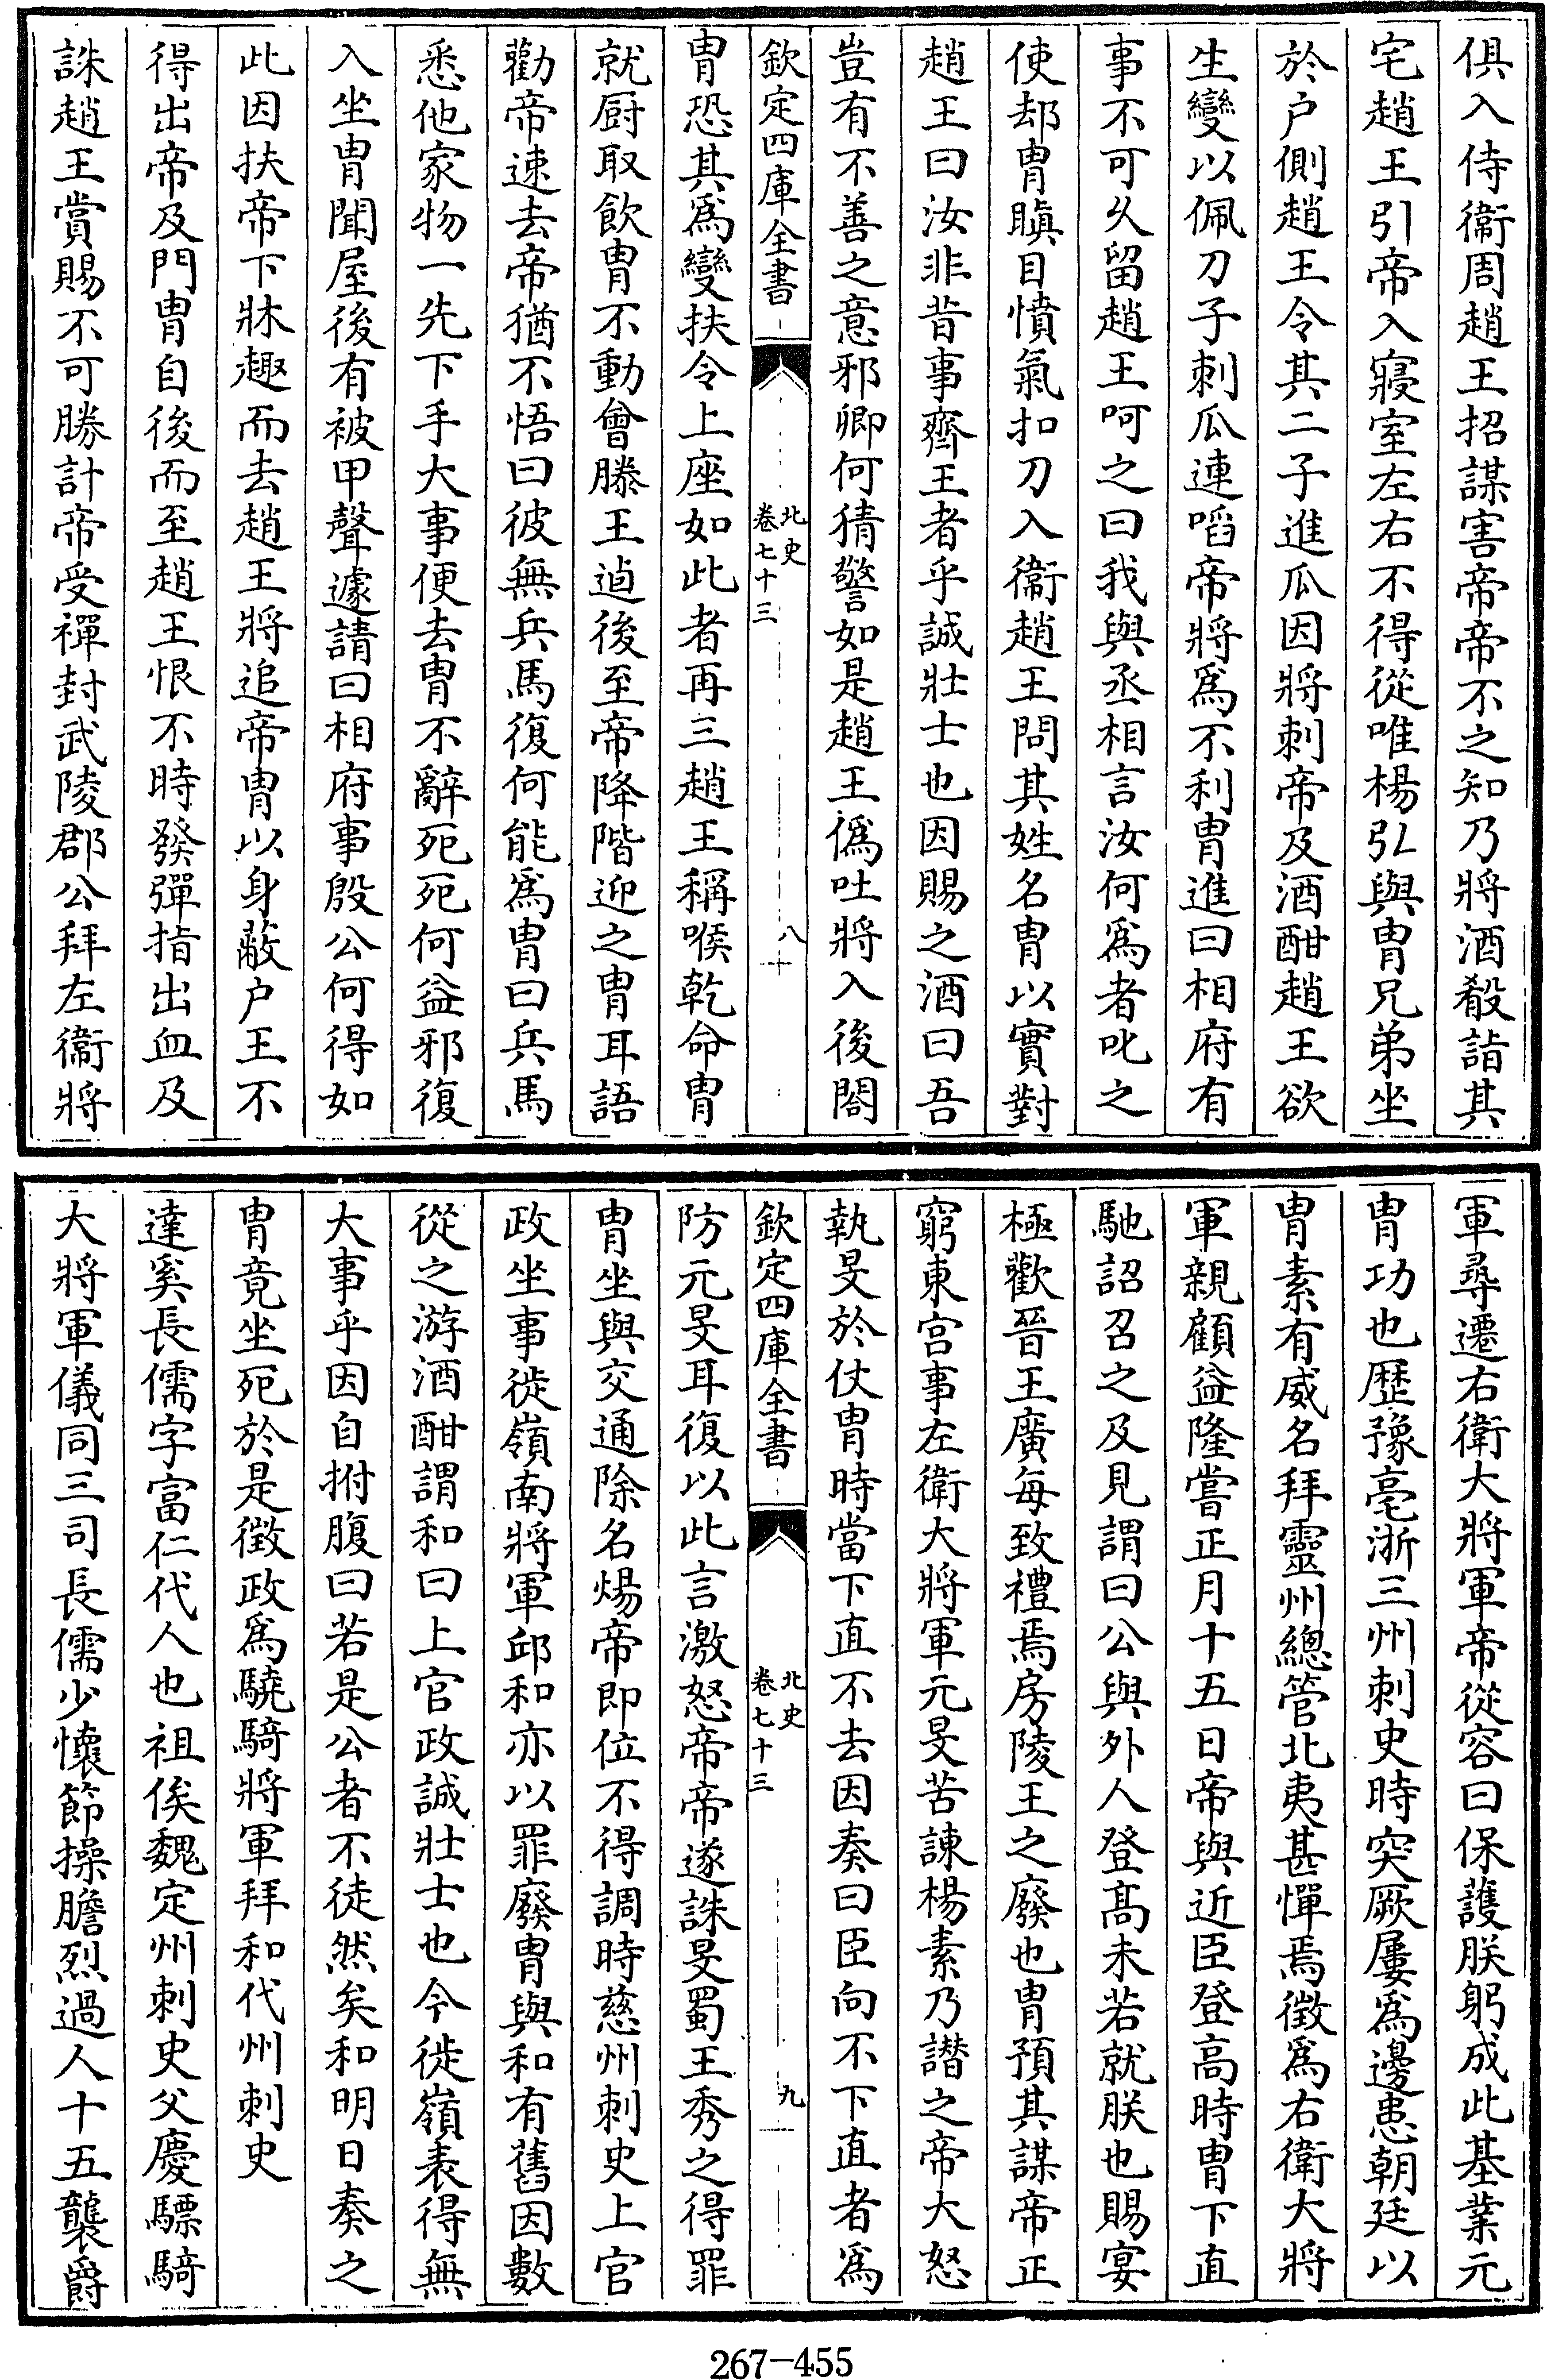 俱入侍衞周趙王招謀害帝帝不之知乃將酒殽詣其
宅趙王引帝入寢室左右不得從唯楊弘與胄兄弟坐
於户側趙王令其二子進瓜因將刺帝及酒酣趙王欲
生變以佩刀子刺瓜連啗帝將爲不利胄進曰相府有
事不可久留趙王呵之曰我與丞相言汝何爲者叱之
使却胄瞋目憤氣扣刀入衞趙王問其姓名胄以實對
趙王曰汝非昔事齊王者乎誠壯士也因賜之酒曰吾
豈有不善之意邪卿何猜警如是趙王僞吐將入後閤
欽定四庫全書
北史
卷七十三
八
胄恐其爲變扶令上座如此者再三趙王稱喉乾命胄
就厨取飲胄不動會滕王逌後至帝降階迎之胄耳語
勸帝速去帝猶不悟曰彼無兵馬復何能爲胄曰兵馬
悉他家物一先下手大事便去胄不辭死死何益邪復
入坐胄聞屋後有被甲聲遽請曰相府事殷公何得如
此因扶帝下牀趣而去趙王將追帝胄以身蔽户王不
得出帝及門胄自後而至趙王恨不時發彈指出血及
誅趙王賞賜不可勝計帝受禪封武陵郡公拜左衞將
軍尋遷右衛大將軍帝從容曰保護朕躬成此基業元
胄功也歷豫亳浙三州刺史時突厥屢爲邊患朝廷以
胄素有威名拜靈州總管北夷甚憚焉徵爲右衛大將
軍親顧益隆嘗正月十五日帝與近臣登高時胄下直
馳詔召之及見謂曰公與外人登髙未若就朕也賜宴
極歡晉王廣每致禮焉房陵王之廢也胄預其謀帝正
窮東宫事左衛大將軍元旻苦諫楊素乃譖之帝大怒
執旻於仗胄時當下直不去因奏曰臣向不下直者爲
欽定四庫全書
北史
卷七十三
九
防元旻耳復以此言激怒帝帝遂誅旻蜀王秀之得罪
胄坐與交通除名煬帝即位不得調時慈州刺史上官
政坐事徙嶺南將軍邱和亦以罪廢胄與和有舊因數
從之游酒酣謂和曰上官政誠壯士也今徙嶺表得無
大事乎因自拊腹曰若是公者不徒然矣和明日奏之
胄竟坐死於是徵政爲驍騎將軍拜和代州刺史
達奚長儒字富仁代人也祖俟魏定州刺史父慶驃騎
大將軍儀同三司長儒少懷節操膽烈過人十五襲爵
267-455